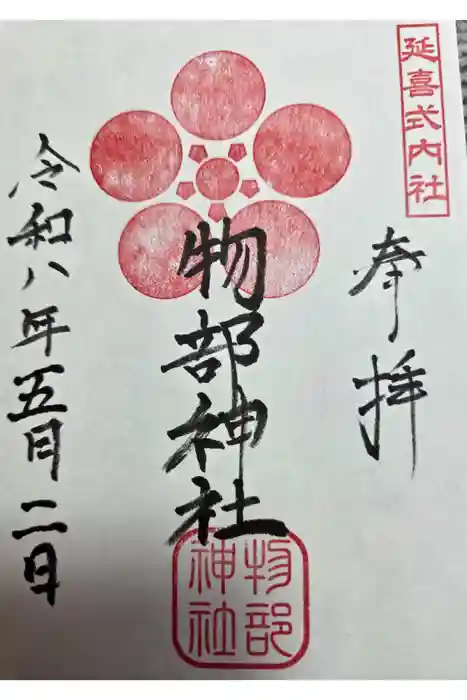 延喜式内社
奉拝
物部神社
物部神社
令和八年五月二日